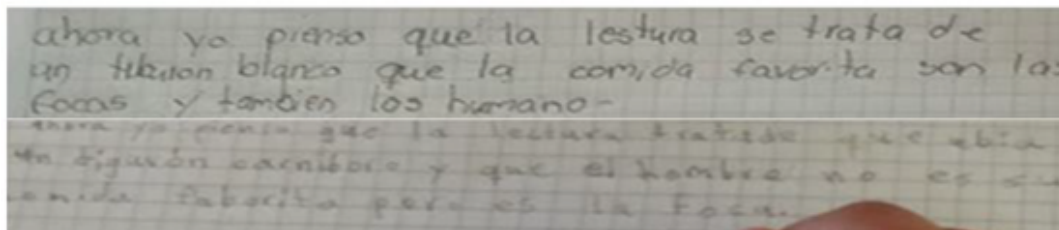 ahora yo pienso que la lestura se trata de
un tiburon blanco que la comida favorita son las
focas y tambien los humano-
ahora yo pienso que la lectura tratade que abia
un tigurón carnibore y que el hombre no es su
comida faborita pero es la foca.